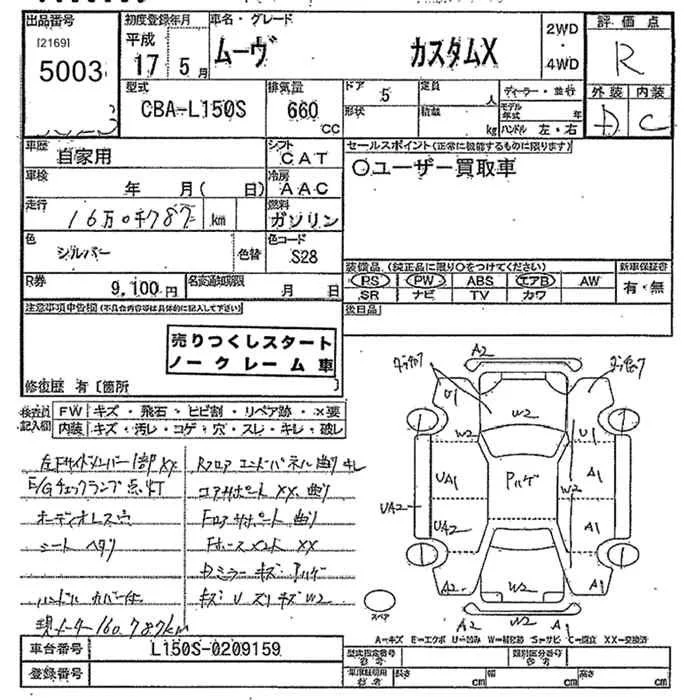 出品番号
[2169]
5003
初度登録年月
平成
17 5月
車名・グレード
ムーヴ カスタムX
2WD
・
4WD
評価点
R
型式
CBA-L150S
排気量
660
CC
ドア
5
形状
定員
人
積載
kg
ディーラー・並行
モデル年式 年
ハンドル 左・右
外装 内装
D C
車歴
自家用
シフト
CAT
車検
年 月( 日)
冷房
AAC
走行
16万0千787 km
燃料
ガソリン
色
シルバー
色替
色コード
S28
R券
9,100円
名変通知期限
月 日
セールスポイント(正常に機能するものに限ります)
〇ユーザー買取車
装備品 (純正品に限り〇をつけてください)
PS PW ABS エアB AW
SR ナビ TV カワ
新車保証書
有・無
後日品
注意事項申告欄(不具合内容等は具体的に記入して下さい)
売りつくしスタート
ノークレーム車
修復歴 有〔箇所 〕
検査員
記入欄
FW キズ・飛石・ヒビ割・リペア跡・×要
内装 キズ・汚レ・コゲ・穴・スレ・キレ・破レ
左Fサイドメンバー1部XX
E/Gチェックランプ点灯
オーディオレス穴
シート ヘタリ
ハンドル カバー
現メーター160,787km
Rフロア エンドパネル曲り
コアサポート XX 曲り
Fロアサポート 曲り
Fホース XX
Dミラー キズ ハゲ
キズ U スリキズ W2
A2
U1
W2
W2
U1
W2
UA1
Pハゲ
A1
UA2
UA2
A1
A2
W2
A1
A2
W2
A1
スペア
A=キズ E=エクボ U=凹み W=補修跡 S=サビ C=腐食 XX=交換済
車台番号
L150S-0209159
登録番号
型式指定番号
参考
類別区分番号
参考
車庫証明用
参考
長さ cm
幅 cm
高さ cm